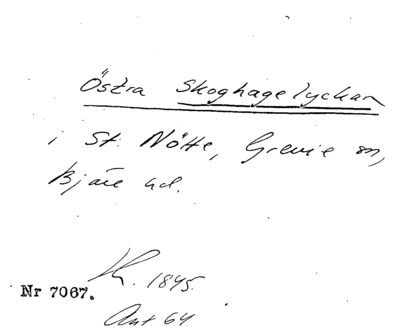 Östra Skoghagelyckan
i St. Nötte, Grevie sn,
Bjäre hd.
K. 1845.
Nr 7067.
Ant. 64